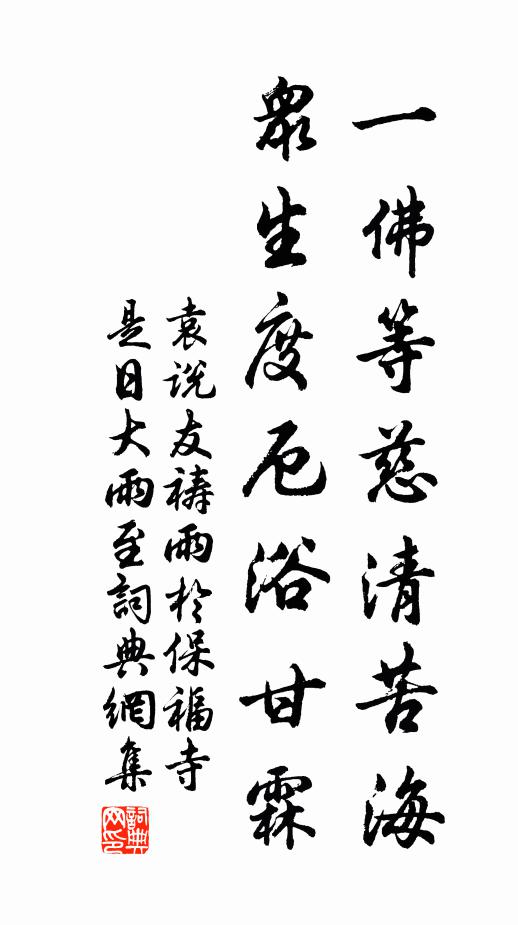 一佛等慈清苦海
眾生度厄浴甘霖
袁説友禱雨於保福寺
是日大雨至詞典網集
詞典網印